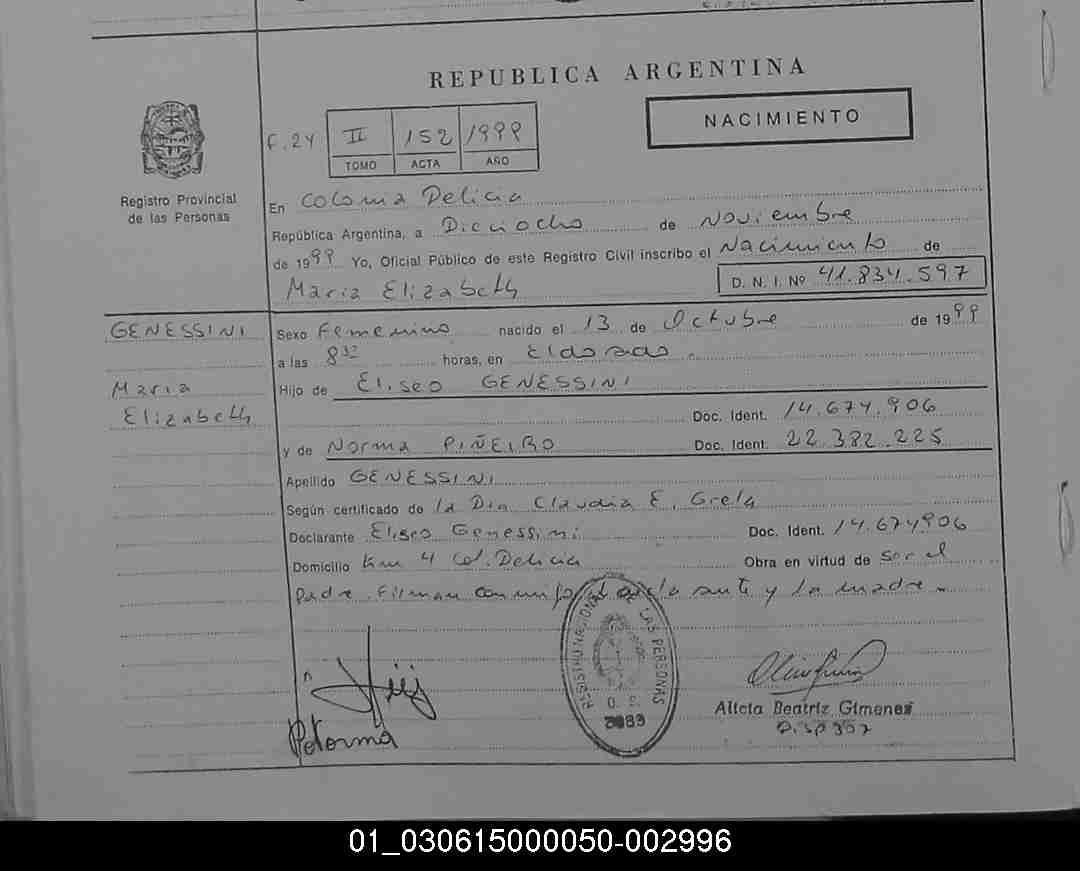 REPUBLICA ARGENTINA
NACIMIENTO
F. 24 II 152 1999
TOMO ACTA AÑO
Registro Provincial
de las Personas
En Colonia Delicia
República Argentina, a Dieciocho de Noviembre
de 1999 Yo, Oficial Público de este Registro Civil inscribo el Nacimiento de
Maria Elizabeth D. N. I. Nº 41.834.597
GENESSINI
Maria
Elizabeth
Sexo Femenino nacido el 13 de Octubre de 1999
a las 8 horas, en Eldorado.
Hijo de Eliseo GENESSINI
Doc. Ident. 14.674.906
y de Norma PIÑEIRO Doc. Ident. 22.382.225
Apellido GENESSINI
Según certificado de la Dra Claudia E. Grela
Declarante Eliseo Genessini Doc. Ident. 14.674906
Domicilio Km 4 Col. Delicia Obra en virtud de ser el
padre. Firman conmigo el y la madre
REGISTRO NACIONAL DE LAS PERSONAS
O. S.
2083
Alicia Beatriz Gimenez
01_030615000050-002996